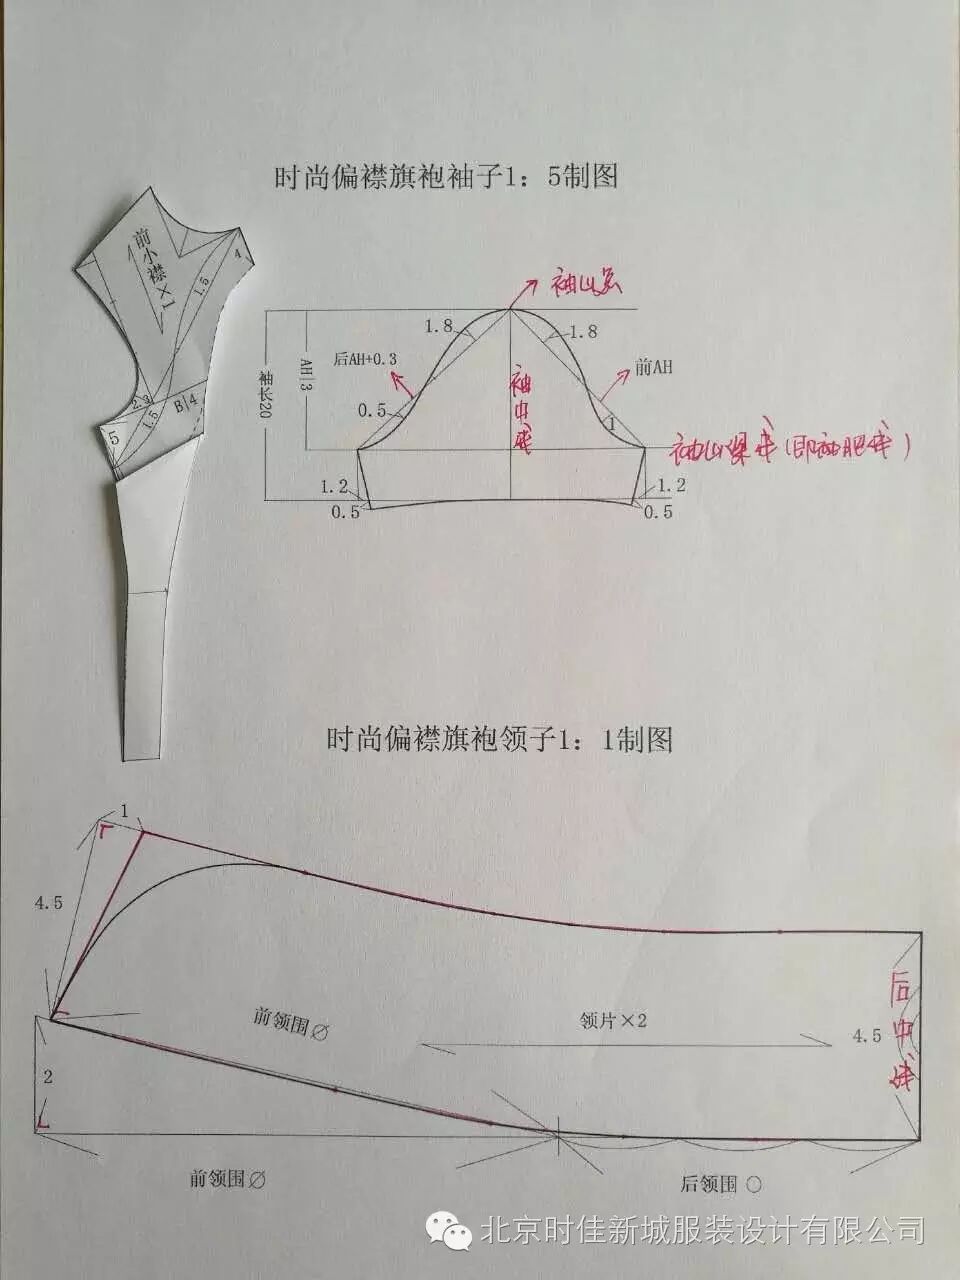 时尚偏襟旗袍袖子1：5制图
前小襟×1
4
1.5
2.3
B|4
1.5
5
袖山点
1.8
1.8
后AH+0.3
前AH
AH|3
袖长20
袖中线
0.5
1
袖山深线(即袖肥线)
1.2
1.2
0.5
0.5
时尚偏襟旗袍领子1：1制图
1
4.5
前领围∅
领片×2
4.5
后中线
2
前领围∅
后领围○
北京时佳新城服装设计有限公司